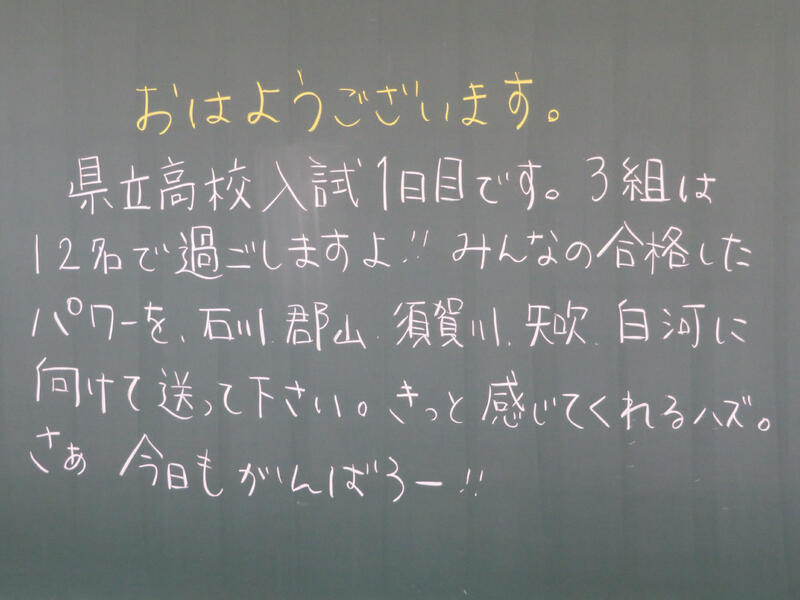 おはようございます。
県立高校入試1日目です。3組は
12名で過ごしますよ!! みんなの合格した
パワーを、石川、郡山、須賀川、矢吹、白河に
向けて送って下さい。きっと感じてくれるハズ。
さぁ 今日もがんばろー!!